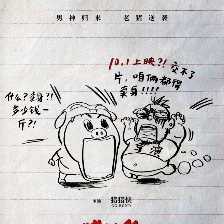 男神归来 老猪逆袭
10.1上映?!交不了
片,咱俩都得
卖身!!!!
什么?卖身?!
多少钱一
斤?!
猪猪侠
GG BOND